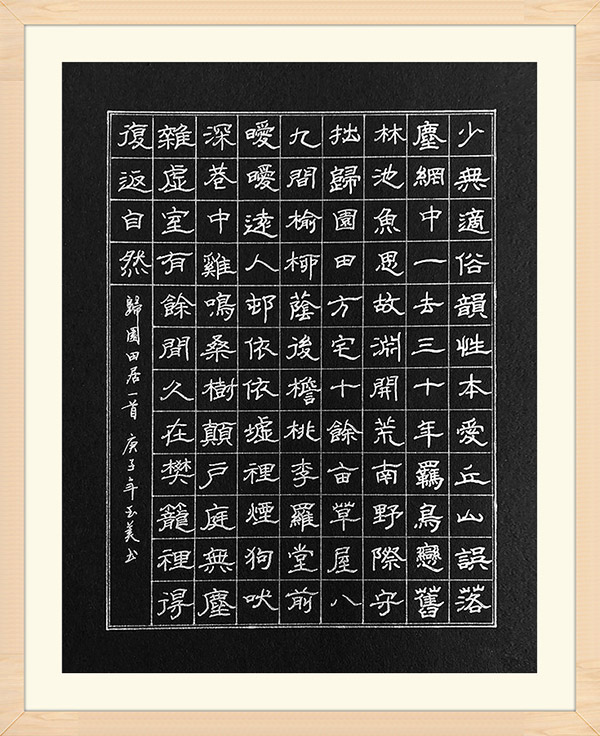 少無適俗韻性本愛丘山誤落
塵網中一去三十年羈鳥戀舊
林池魚思故淵開荒南野際守
拙歸園田方宅十餘亩草屋八
九間榆柳蔭後檐桃李羅堂前
曖曖遠人邨依依墟裡煙狗吠
深巷中雞鳴桑樹顛戶庭無塵
雜虛室有餘閒久在樊籠裡得
復返自然
歸園田居一首 庚子年玉美书